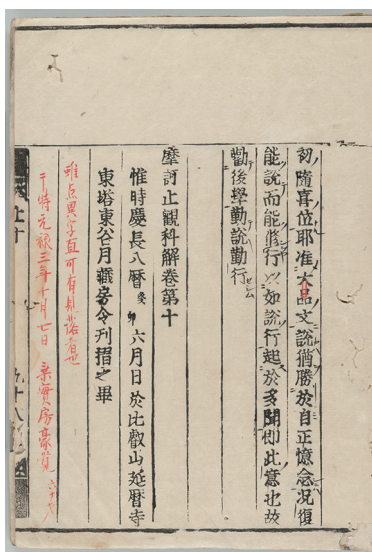 初隨喜位耶准大品文說猶勝於自正憶念況復
能說而能修行以如說行起於多聞即此意也故
勸後學勤說勤行
摩訶止觀科解卷第十
惟時慶長八曆癸卯六月日於比叡山延曆寺
東塔東谷月藏房令刊摺之畢
雖点異字直可有見落者也
于時元祿三年十月七日
止十
五十八